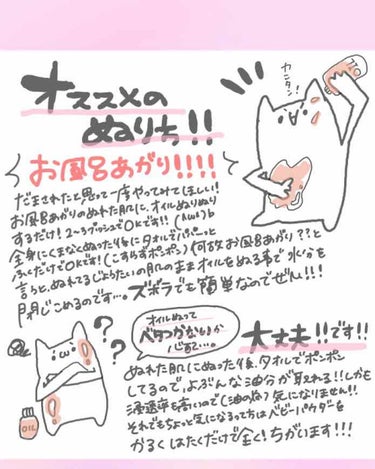 カンタン!
オススメの
ぬりち!!
お風呂あがり!!!!
だまされたと思って一度やってみてほしい!
お風呂あがりのぬれた肌に、オイルぬりぬり
するだけ! 2〜3プッシュでOKです!!
全身にくまなくぬった後にタオルで
ふくだけでOKです!(こすらずポンポン) 何故お風呂あがり??と
言うと、ぬれてるじょうたいの肌のままオイルをぬる事で水分を
閉じこめるのです…。ズボラでも簡単なのでぜひ!!!
オイルぬって
ベタつかないか
心配…。
大丈夫!!です!!
ぬれた肌にぬった後、タオルでポンポン
してるので、よぶんな油分が取れる!!しかも
浸透率も高いので(油の為)気になりません!!
それでもちょっと気になるって方はベビーパウダーを
かるくはたくだけで全く!ちがいます!!!
OIL